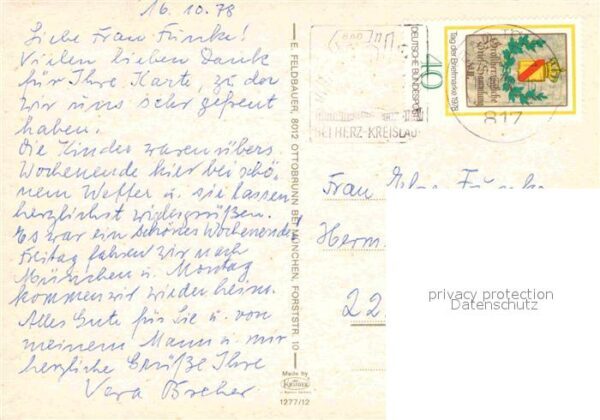 16.10.78
Liebe Frau Funke!
Vielen lieben Dank
für Ihre Karte, zu der
wir uns sehr gefreut
haben.
Die Kinder waren übers
Wochenende hier bei schö-
nem Wetter u. sie lassen
herzlichst widergrüßen.
Es war ein schönes Wochenende!
Freitag fahren wir nach
München u. Montag
kommen wir wieder heim.
Alles Gute für Sie u. von
meinem Mann u. mir
herzliche Grüße Ihre
Vera
E. FELDBAUER, 8012 OTTOBRUNN BEI MÜNCHEN, FORSTSTR. 10
Made by
KRÜGER
1277/12
DEUTSCHE BUNDESPOST
40
Tag der Briefmarke 1978
BEI HERZ-KREISLAUF
817
Frau
Herm.
22
privacy protection
Datenschutz